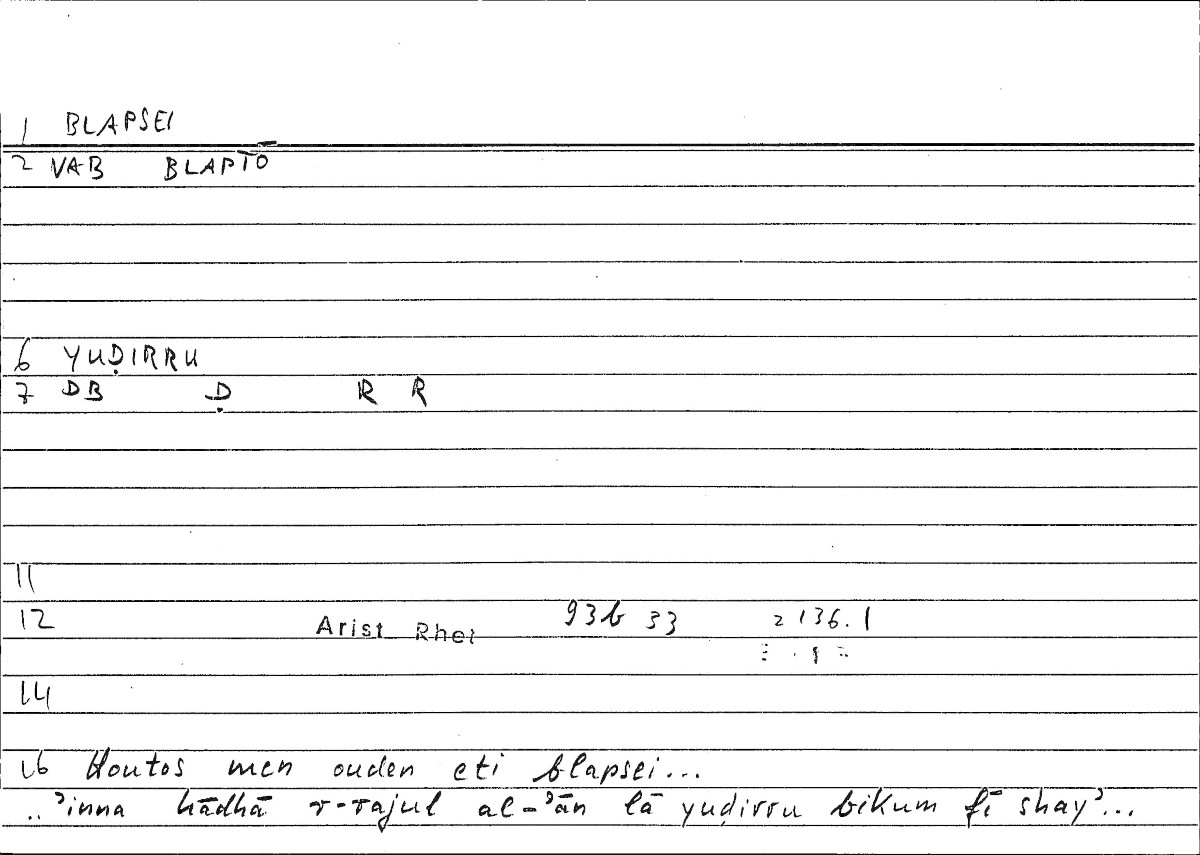 1 BLAPSEI
2 VAB BLAPTŌ
6 YUḌIRRU
7 DB Ḍ R R
11
12 Arist Rhet 93b 33 2 136.1
14
16 Houtos men ouden eti blapsei...
..ʾinna hādhā r-rajul al-ʾān lā yuḍirru bikum fī shayʾ...